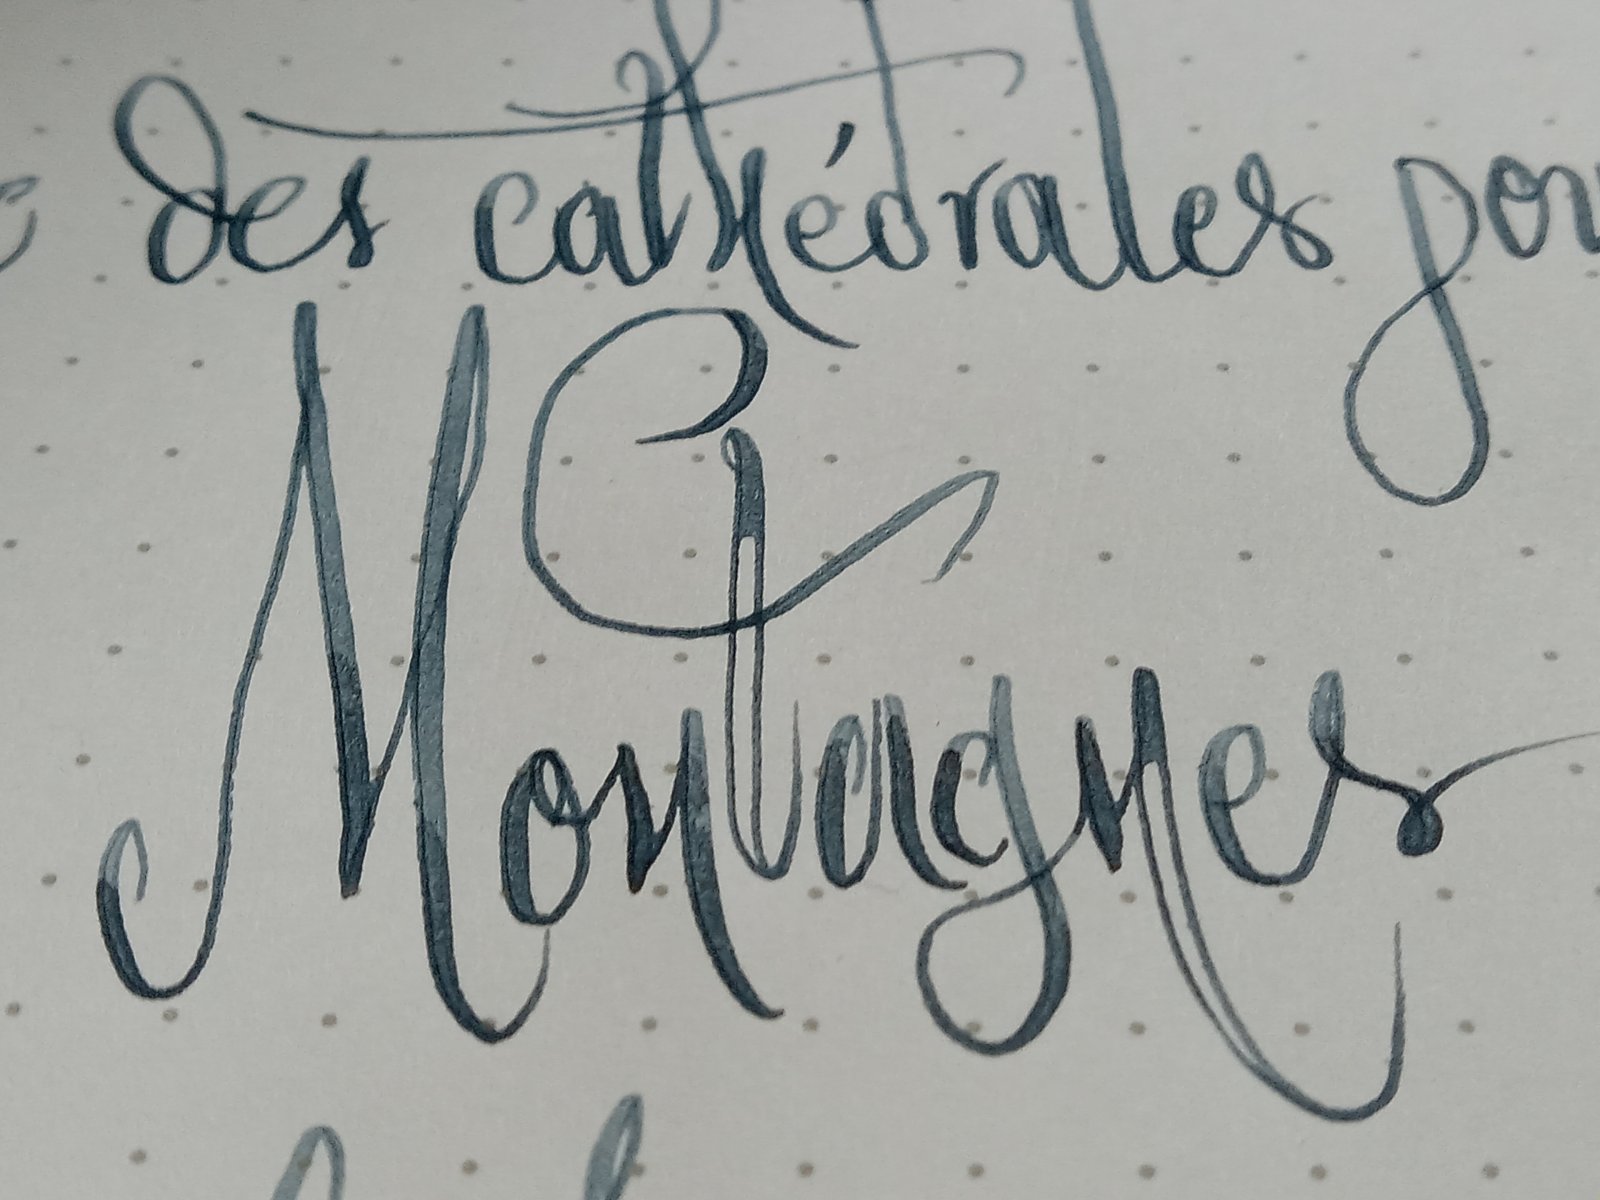 des cathédrales pour
Montagnes